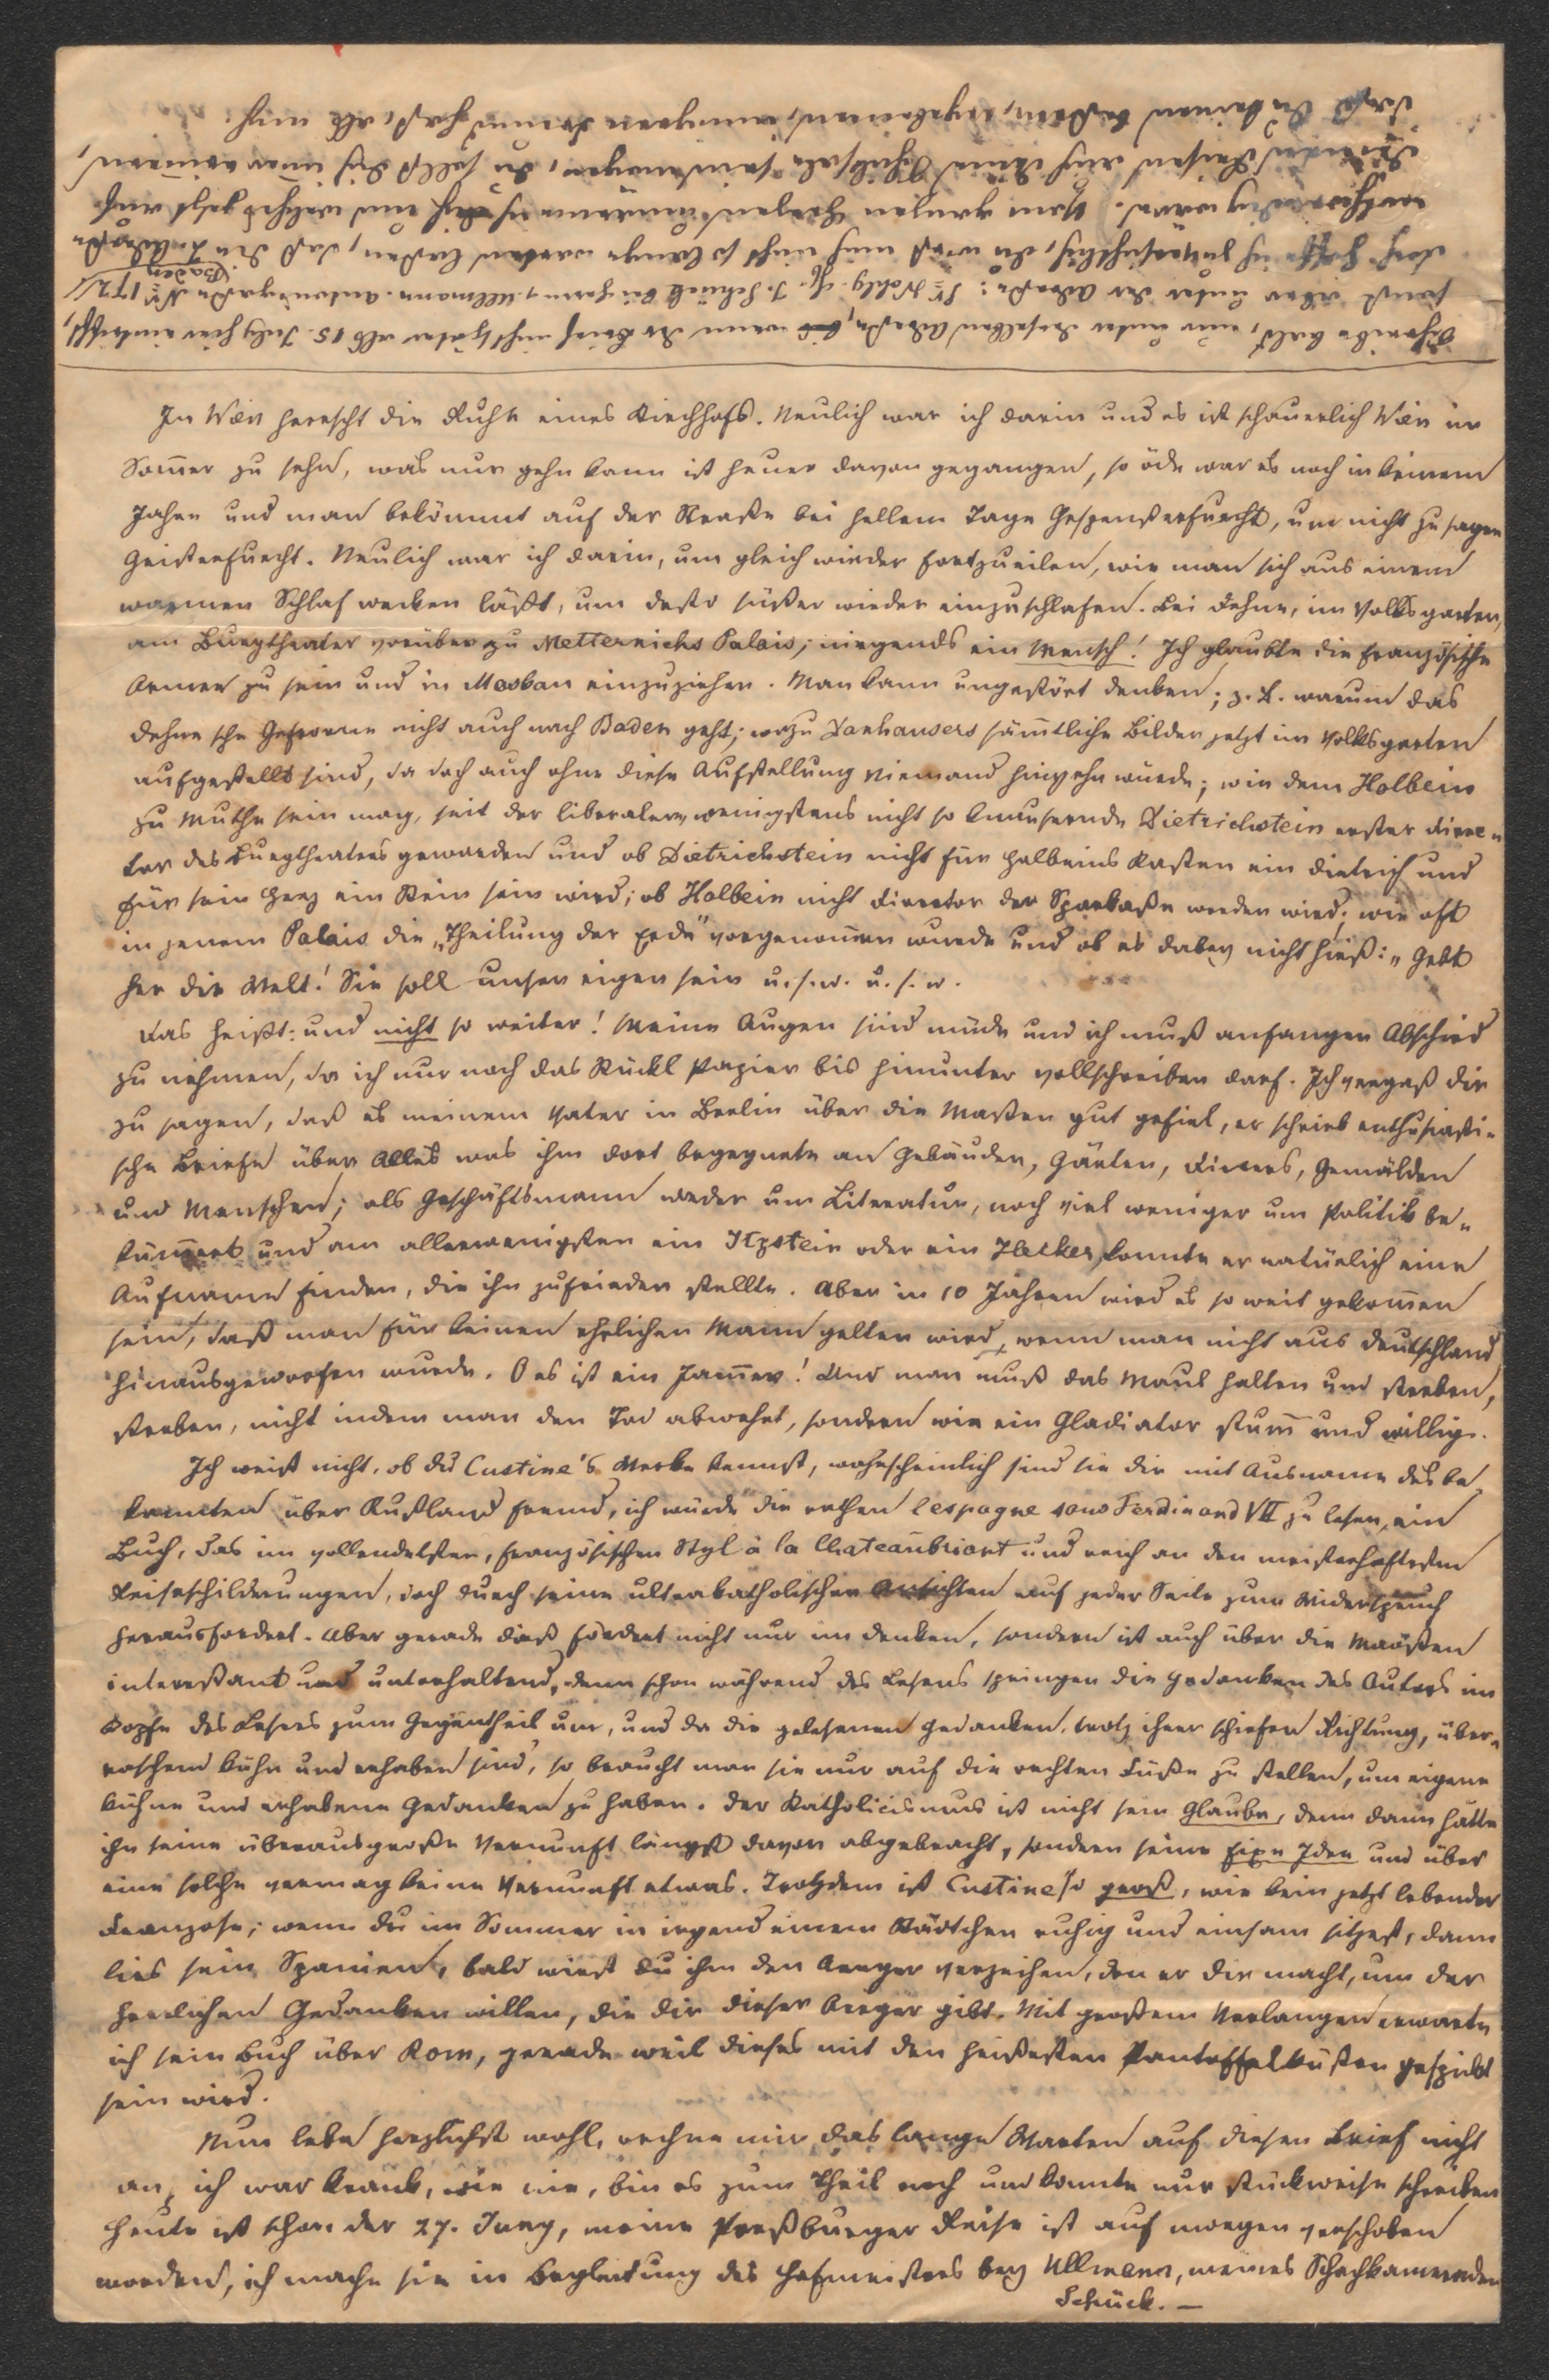 In Wien herrscht die Ruhe eines Kirchhofs. Neulich war ich darin und es ist schauerlich Wien im
Sommer zu sehn, was nur gehn kann ist heuer davon gegangen, so öde war es noch in keinem
Jahre und man bekömmt auf der Straße bei hellem Tage Gespensterfurcht, um nicht zu sagen
Geisterfurcht. Neulich war ich darin, um gleich wieder fortzueilen, wie man sich aus einem
warmen Schlaf wecken läßt, um desto süßer wieder einzuschlafen. Bei Dehne, im Volksgarten,
am Burgtheater vorüber zu Metternichs Palais; nirgends ein Mensch! Ich glaubte die französische
Armee zu sein und in Moskau einzuziehen. Man kann ungestört denken; z. B. warum das
Dehne'sche Gefrorne nicht auch nach Baden geht; wozu Danhausers sämtliche Bilder jetzt im Volksgarten
aufgestellt sind, da doch auch ohne diese Aufstellung Niemand hingehn würde; wie dem Holbein
zu Muthe sein mag, seit der liberalere, wenigstens nicht so knausernde Dietrichstein erster Direc-
tor des Burgtheaters geworden und ob Dietrichstein nicht für Holbeins Kasten ein Dietrich und
für sein Herz ein Stein sein wird; ob Holbein nicht Director der Sparkaße werden wird; wie oft
in jenem Palais die „Theilung der Erde" vorgenommen wurde und ob es dabey nicht hieß: „Gebt
her die Welt! Sie soll unser eigen sein u. s. w. u. s. w.
Das heißt: und nicht so weiter! Meine Augen sind müde und ich muß anfangen Abschied
zu nehmen, da ich nur noch das Stückl Papier bis hinunter vollschreiben darf. Ich vergaß dir
zu sagen, daß es meinem Vater in Berlin über die Maßen gut gefiel, er schrieb enthusiasti-
sche Briefe über Alles was ihm dort begegnete an Gebäuden, Gärten, Diners, Gemälden
und Menschen; als Geschäftsmann weder um Literatur, noch viel weniger um Politik be-
kümmert und am allerwenigsten ein Itzstein oder ein Hecker, konnte er natürlich eine
Aufname finden, die ihn zufrieden stellte. Aber in 10 Jahren wird es so weit gekommen
sein, daß man für keinen ehrlichen Mann gelten wird, wenn man nicht aus Deutschland
hinausgeworfen wurde. O es ist ein Jammer! Und man muß das Maul halten und sterben,
sterben, nicht indem man den Tod abwehrt, sondern wie ein Gladiator stumm und willig.
Ich weiß nicht, ob du Custine's Werke kennst, wahrscheinlich sind sie dir mit Ausname des be-
kannten über Rußland fremd, ich würde dir rathen l'espagne sous Ferdinand VII zu lesen, ein
Buch, das im vollendetsten, französischen Styl à la Chateaubriant und reich an den meisterhaftesten
Reiseschilderungen, doch durch seine ultrakatholischen Ansichten auf jeder Seite zum Widerspruch
herausfordert. Aber gerade dieß fördert nicht nur im denken, sondern ist auch über die Maaßen
intereßant und unterhaltend, denn schon während des Lesens springen die Gedanken des Autors im
Kopfe des Lesers zum Gegentheil um, und da die gelesenen Gedanken, trotz ihrer schiefen Richtung, über-
raschend kühn und erhaben sind, so braucht man sie nur auf die rechten Füße zu stellen, um eigene
kühne und erhabene Gedanken zu haben. Der Katholicismus ist nicht sein Glaube, denn dann hätte
ihn seine überausgroße Vernunft längst davon abgebracht, sondern seine fixe Idee und über
eine solche vermag keine Vernunft etwas. Trotzdem ist Custine so groß, wie kein jetzt lebender
Franzose; wenn du im Sommer in irgend einem Städtchen ruhig und einsam sitzest, dann
lies sein Spanien, bald wirst du ihm den Aerger verzeihen, den er dir macht, um der
herrlichen Gedanken willen, die dir dieser Aerger gibt. Mit großem Verlangen erwarte
ich sein Buch über Rom, gerade weil dieses mit den heißesten Pantoffelküßen gespickt
sein wird.
Nun lebe herzlichst wohl, rechne mir das lange Warten auf diesen Brief nicht
an, ich war krank, wie nie, bin es zum Theil noch und konnte nur stückweise schreiben
Heute ist schon der 27. Juny, meine Preßburger Reise ist auf morgen verschoben
worden, ich mache sie in Begleitung des Hofmeisters bey Ullmann, meines Schachkameraden
Schück. —
Schreibe bald, nur unter derselben Adreße, wenn der Brief nicht später als 15. July hier eintrifft,
sonst aber unter der Adreße: Sr Wohlg. H. J. Schück bei Herrn Ullmann. Antonigaße No 172/
Baden.
doch hoffe ich zuversichtlich, du wirst mich nicht so lange warten laßen, daß die Adreße
nothwendig wäre. Vom ganzen Herzen umarme ich dich und welcher geht auch
deinem Reisen auch deine Schicksale sein mögen, du sollst dich immer erinnern,
daß du keinen beßern, ergebenern, innigern Freund hast, als mich.